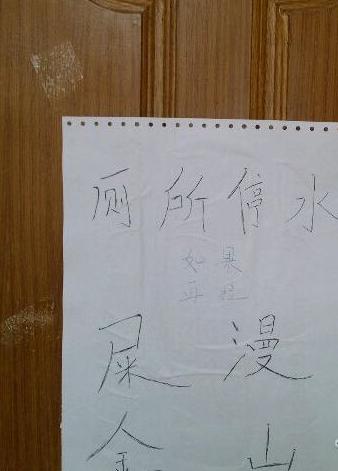 厕所停水
如果
再
屎漫
金山